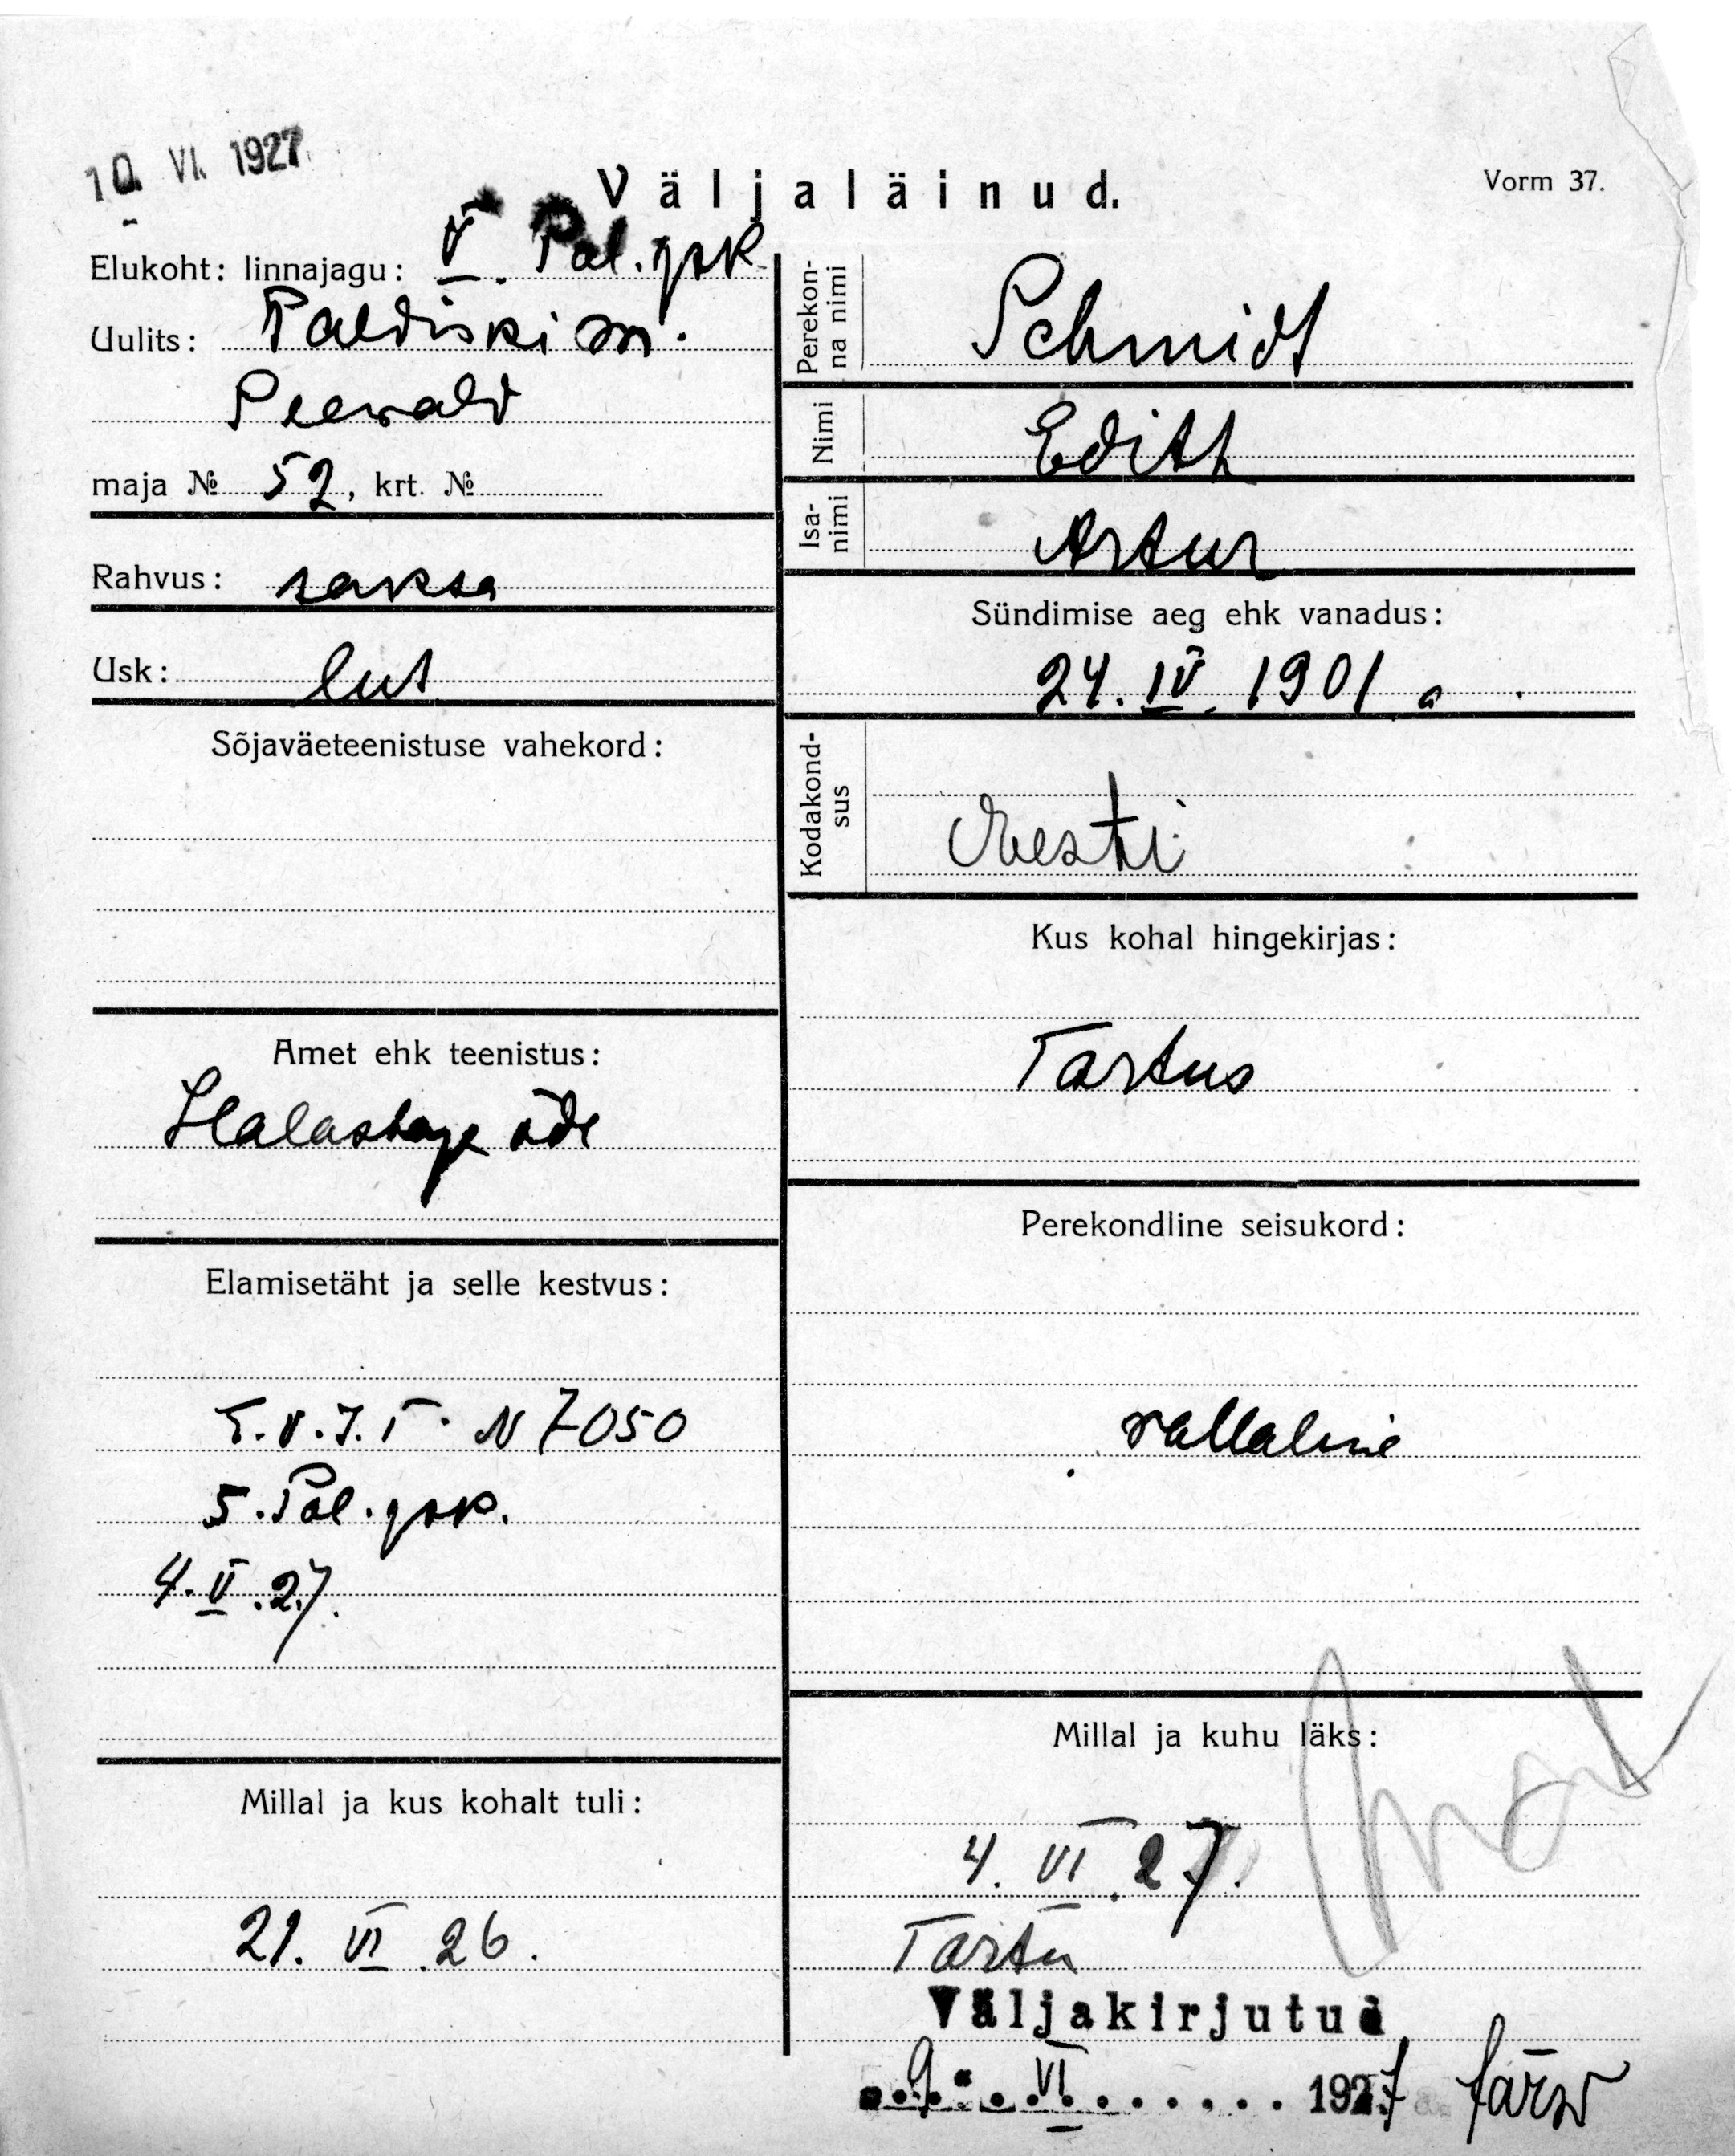 10. VI. 1927
Väljaläinud.
Vorm 37.
Elukoht: linnajagu: V. Pol. jsk
Uulits: Paldiski m.
Seewald
maja № 52, krt. №
Rahvus: saksa
Usk: lut
Sõjaväeteenistuse vahekord:
Amet ehk teenistus:
Halastaja õde
Elamisetäht ja selle kestvus:
T.V.I.T. N 7050
5. Pol. jsk.
4. V. 27.
Millal ja kus kohalt tuli:
21. VI. 26.
Perekonna nimi Schmidt
Nimi Edith
Isanimi Artur
Sündimise aeg ehk vanadus:
24. IV. 1901 a.
Kodakondsus
Eesti
Kus kohal hingekirjas:
Tartus
Perekondline seisukord:
vallaline
Millal ja kuhu läks:
4. VI. 27.
Tartu
Väljakirjutud
9. VI 1927